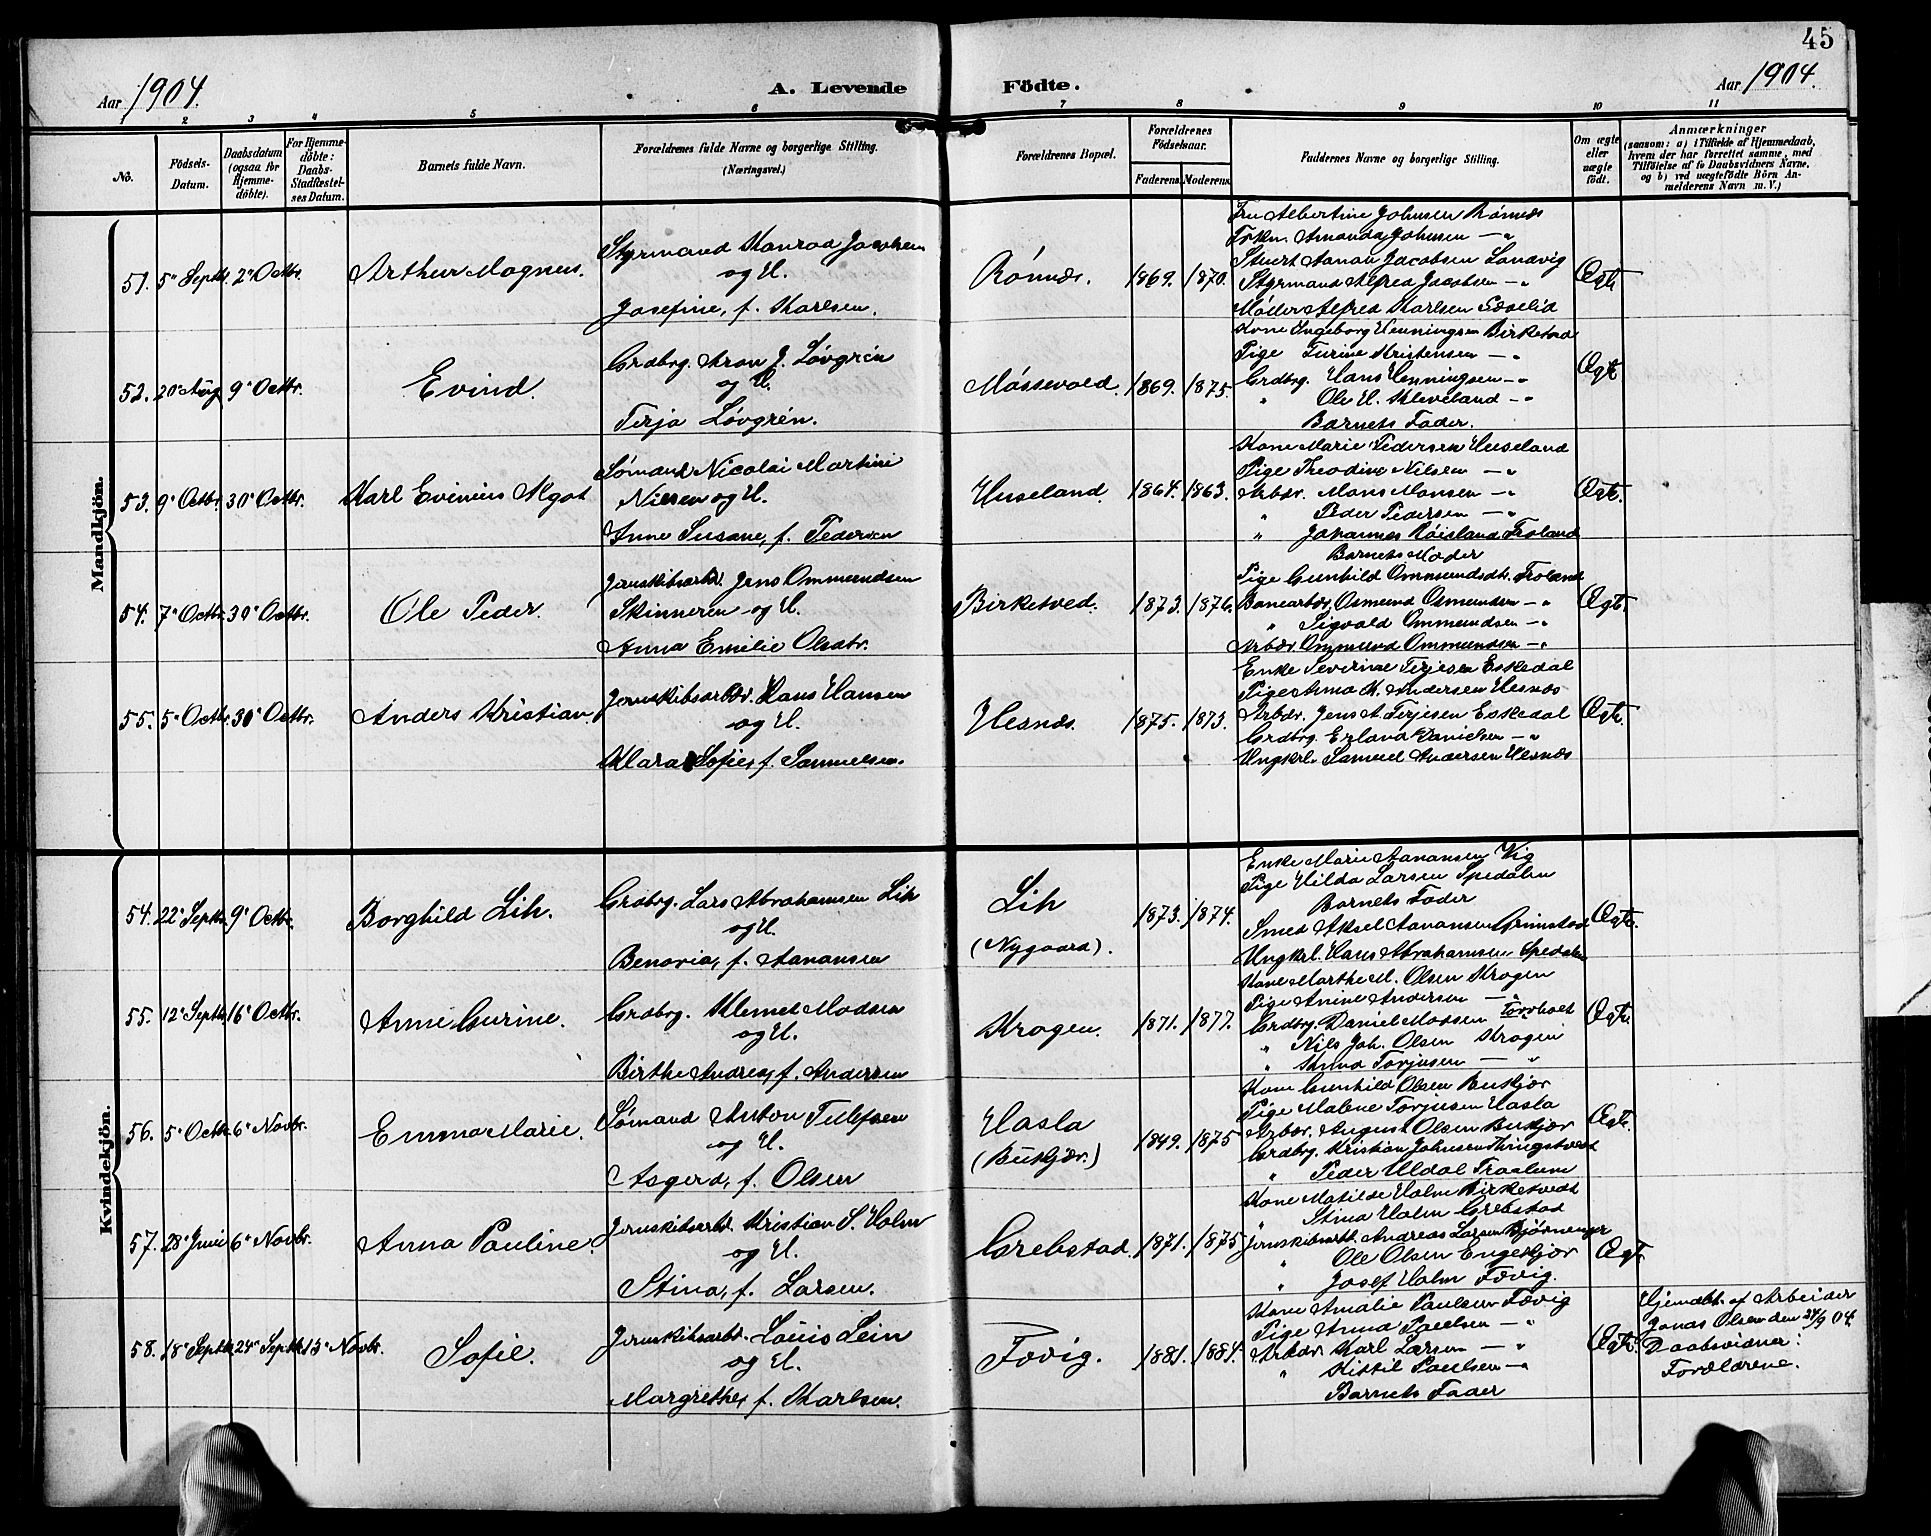 45
Aar 1904.
A. Levende Födte.
Aar 1904.
1 2 3 4 5 6 7 8 9 10 11
No.
Födsels-
Datum.
Daabsdatum
(ogsaa for
Hjemme-
döbte).
For Hjemme-
döbte:
Daabs-
Stadfæstel-
ses Datum.
Barnets fulde Navn.
Forældrenes fulde Navne og borgerlige Stilling.
(Næringsvei.)
Forældrenes Bopæl.
Forældrenes
Födselsaar.
Faderens. Moderens.
Faddernes Navne og borgerlige Stilling.
Om ægte
eller
uægte
födt.
Anmærkninger
(saasom: a) i Tilfælde af Hjemmedaab,
hvem der har forrettet samme, med
Tilföielse af to Daabsvidners Navne,
og b) ved uægtefödte Börn An-
melderens Navn m. V.)
Mandkjön.
51. 5' Septbr. 2' Octbr. Arthur Magnus.
Styrmand Konrad Jacobsen
og H.
Josefine, f. Karlsen.
Rønnæs. 1869. 1870.
Fru Albertine Johnsen Rønnæs
Frkn. Amanda Johnsen — "
Stuert Aanon Jacobsen Landvig
Styrmand Alfred Jacobsen — "
Møller Alfred Karlsen
Ægte
52. 20' Aug 9' Octbr. Evind.
Grdbrg. Aron J. Løvgrén
og H.
Terja Løvgrén.
Møssevold. 1869. 1875.
Kone Ingeborg Henningsen Birketvad
Pige Turine Kristensen — "
Grdbrg. Hans Henningsen — "
" Ole H. Kleveland — "
Barnets Fader.
Ægte
53. 9' Octbr. 30' Octbr. Karl Evinius Algot
Sømand Nicolai Martini
Nilsen og H.
Anne Susane, f. Pedersen
Huseland. 1864. 1863.
Kone Marie Pedersen Huseland
Pige Theodine Nilsen — "
Arbdr. Mons Monsen — "
" Peder Pedersen — "
" Johannes Røisland Froland
Barnets Moder
Ægte.
54. 7' Octbr. 30' Octbr. Ole Peder.
Jernskibsarbd. Jens Ommundsen
Skinneren og H.
Anna Emilie Olsdtr.
Birketved. 1873. 1876.
Pige Gunhild Ommundsdtr. Froland
Banearbdr. Osmund Osmundsen — "
" Sigvald Ommundsen — "
Arbdr. Ommund Ommundsen — "
Ægte.
55. 5' Octbr. 30' Octbr. Anders Kristian.
Jernskibsarbdr. Hans Hansen
og H.
Klara Sofie, f. Samuelsen.
Hesnæs. 1875. 1873.
Enke Severine Terjesen Eskedal
Pige Anna K. Andersen Hesnæs
Arbdr. Jens A. Terjesen Eskedal
Grdbrg. Erland Danielsen — "
Ungkrl. Samuel Andersen Hesnæs
Ægte.
Kvindekjön.
54. 22' Septbr. 9' Octbr. Borghild Lih.
Grdbrg. Lars Abrahamsen Lih
og H.
Benovia, f. Aanonsen
Lih
(Nygaard).
1873. 1874.
Enke Marie Aanonsen Vig
Pige Hilda Larsen Spedalen
Barnets Fader
Smed Aksel Aanonsen Grimstad
Ungkrl. Hans Abrahamsen Spedalen
Ægte.
55. 12' Septbr. 16' Octbr. Anne Gurine.
Grdbrg. Klemet Madsen
og H.
Birthe Andrea, f. Andersen
Krogen. 1871. 1877.
Kone Marthe M. Olsen Krogen
Pige Anine Andersen — "
Grdbrg. Daniel Madsen Torvholt
" Nils Joh. Olsen Krogen
" Knud Torjusen — "
Ægte
56. 5' Octbr. 6' Novbr. Emma Marie.
Sømand Anton Tellefsen
og H.
Asgerd, f. Olsen
Hasla
(Buskjær.)
1849. 1875
Kone Gunhild Olsen Buskjær
Pige Malene Torjusen Hasla
Arbdr. August Olsen Buskjær
Grdbrg. Kristian Johnsen Ringstvedt
" Peder Uldal Traalum
Ægte.
57. 28' Juni 6' Novbr. Anna Pauline.
Jernskibsarbd. Kristian S. Holm
og H.
Stina, f. Larsen.
Grebstad. 1871. 1875
Kone Matilde Holm Birketvedt
" Stina Holm Grebstad
Jernskibsarb. Andreas Larsen Bjørnenger
" Ole Olsen Engekjær
" Josef Holm Fævig.
Ægt.
58. 18' Septbr. 24' Septbr. 13' Novbr. Sofie.
Jernskibsarbd. Louis Lein
og H.
Margrethe, f. Karlsen.
Fævig. 1881. 1884.
Kone Amalie Paulsen Fævig
Pige Anna Paulsen — "
Arbdr. Karl Larsen — "
" Kittil Paulsen — "
Barnets Fader
Ægte.
Hjemdbt. af Arbeider
Jonas Olsen den 24/9 04.
Daabsvidner:
Forældrene.